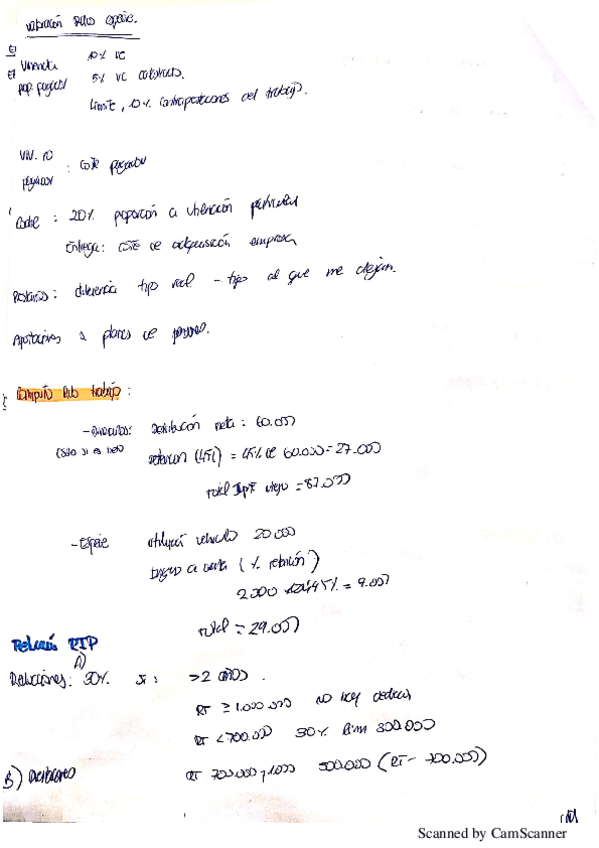 valoración Rdtos especie.
Vivienda 10% VC
prop. pagador 5% VC
Límite, 10% contraprestaciones del trabajo.
Viv. no
pagador : coste pagador
Coche : 20% proporción a utilización particular
Entrega: coste de adquisición empresa
Préstamos: diferencia tipo real - tipo al que me dejan.
Aportaciones a planes de pensiones.
Computo Rdto trabajo :
- retribución neta : 60.000
(Sólo si es neto) retención (45%) = 45% de 60.000 = 27.000
total = 87.000
- Especie utilización vehículo 20.000
Ingreso a cuenta (% retención)
45% = 9.000
total = 29.000
A)
Reducciones: 30% si : >2 años.
RT ≥ 1.000.000 no hay
RT < 700.000 30% lim 300.000
B) RT 700.000 y 1.000 300.000 (RT - 700.000)
Scanned by CamScanner